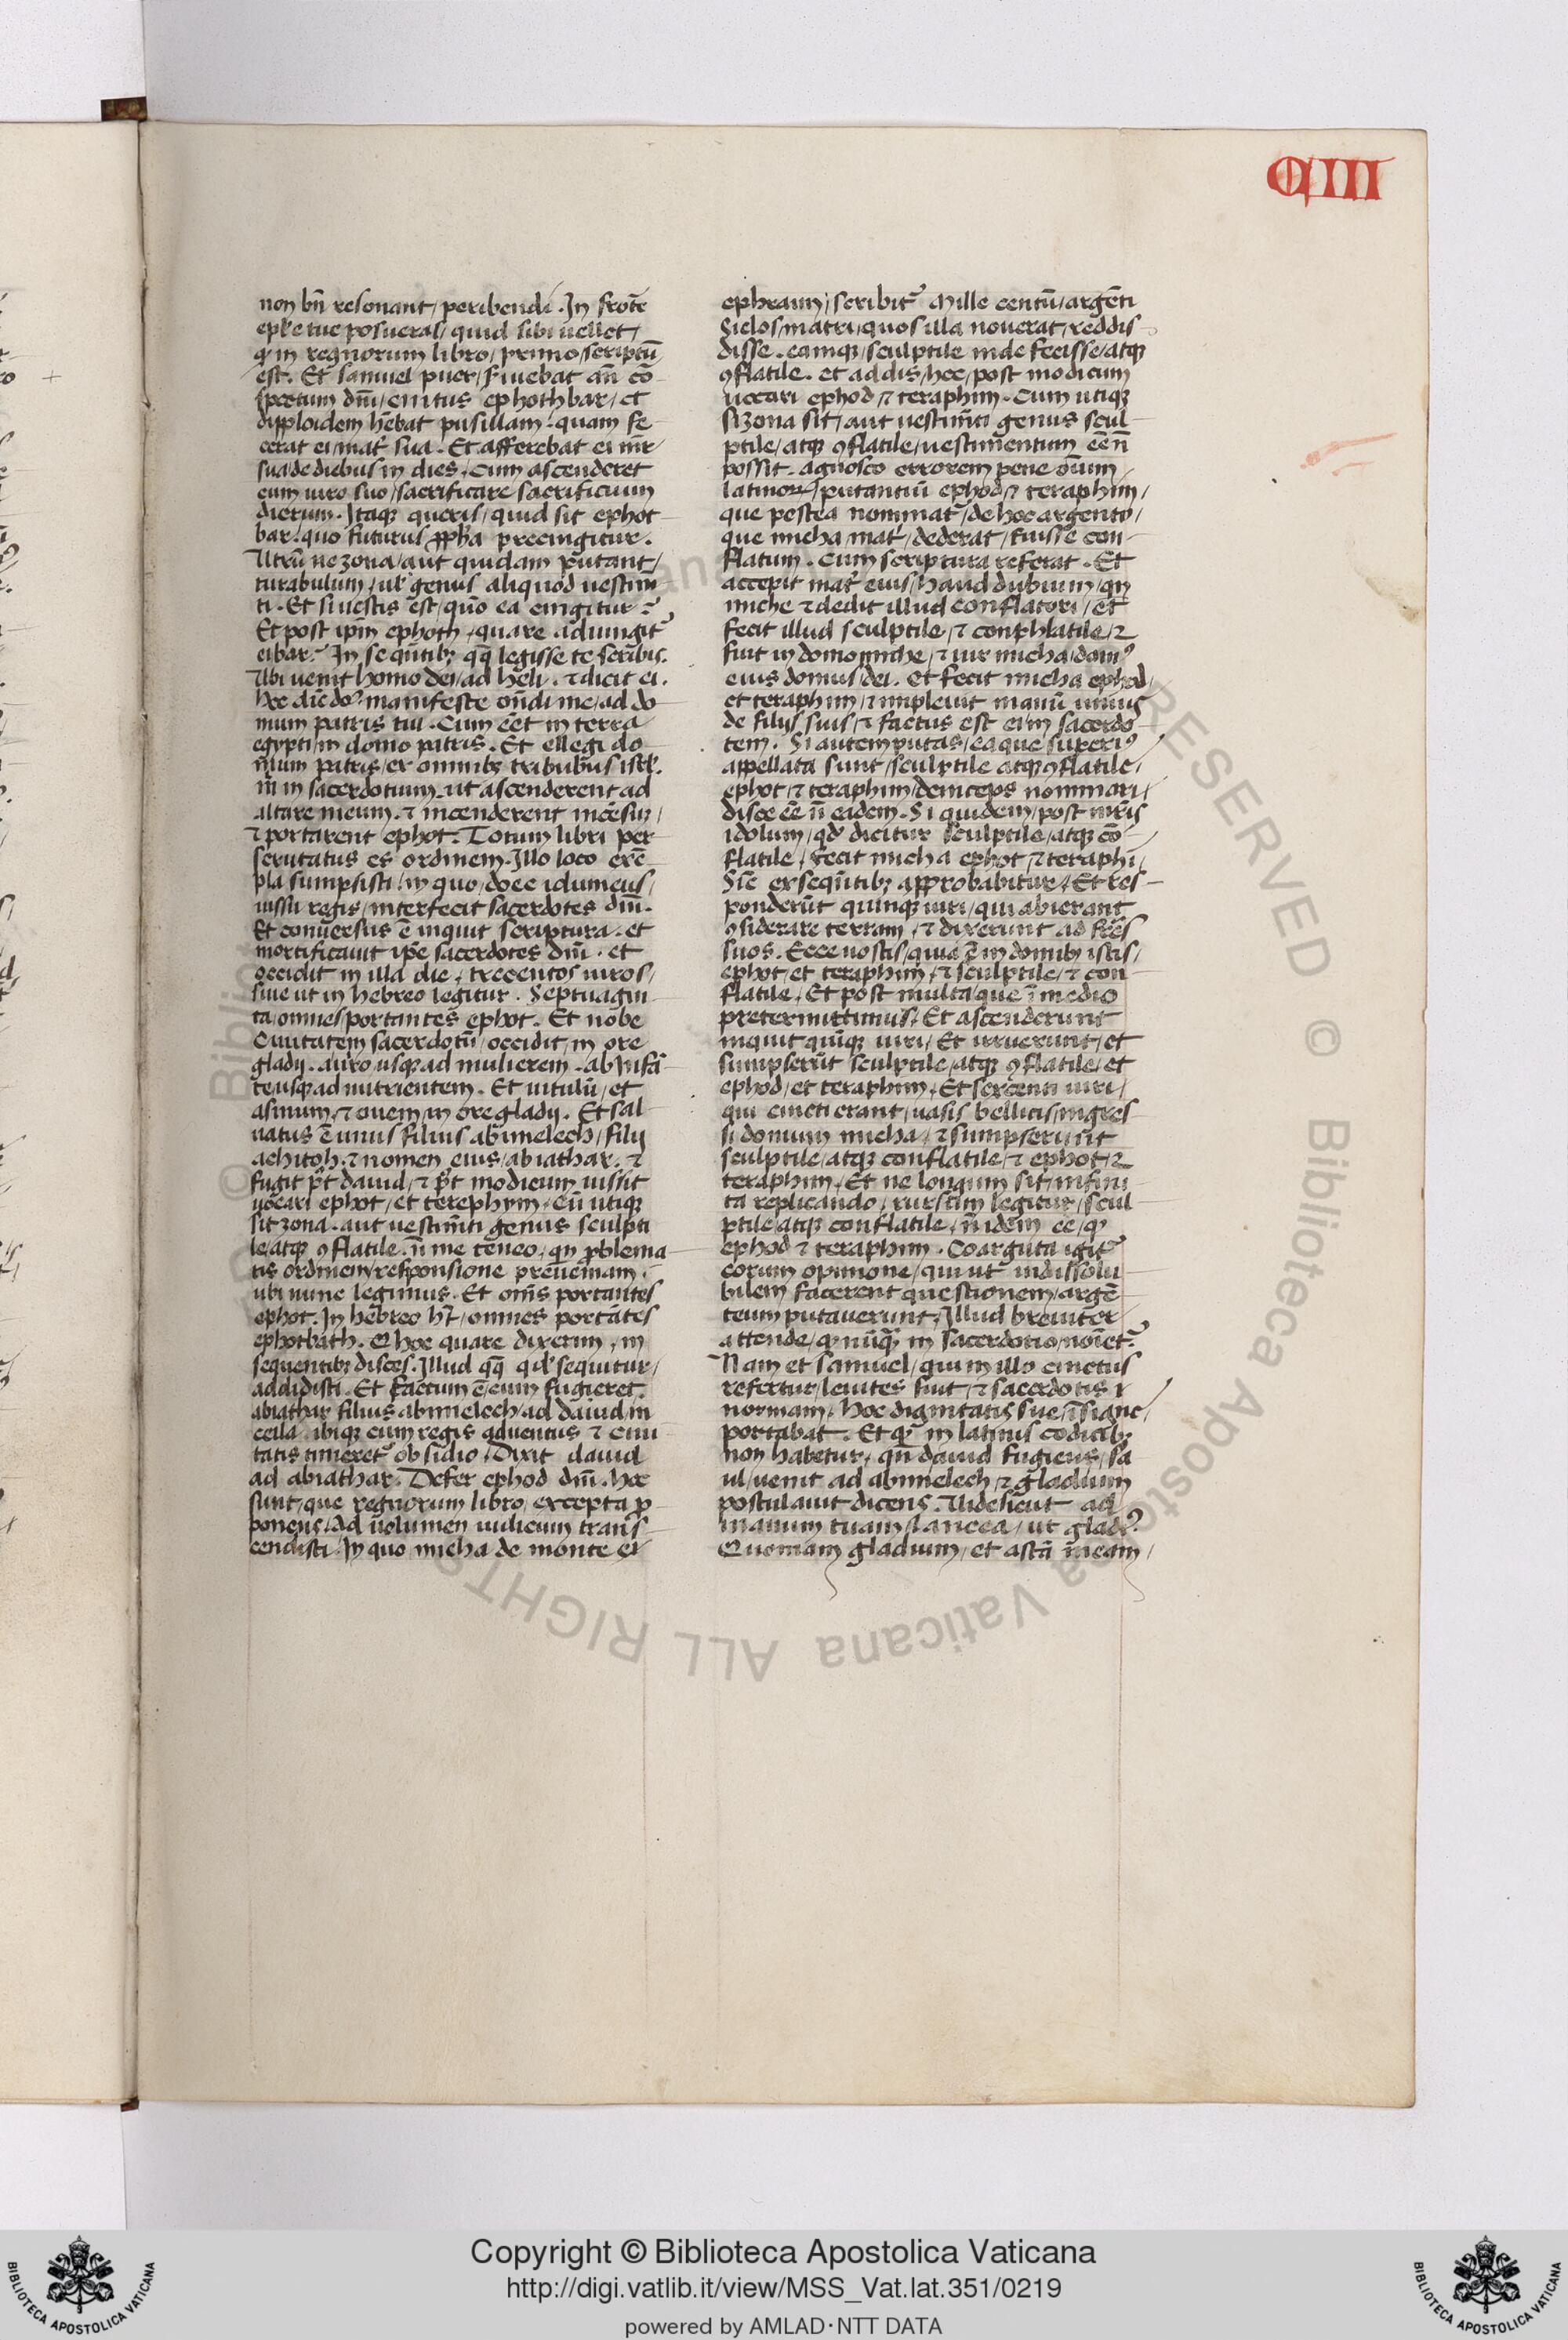 CIII
non bn̄ resonant / peribendi . In frōte
ep̄le tue posueras / quid sibi uellet /
ꝙ in regnorum libro / primo / scriptū
est . Et samuel puer / siuebat an̄ cō
spectum dn̄i / cinctus ephothbar / et
diploidem hēbat pusillam : quam fe
cerat ei / mat̓ sua . Et afferebat ei mr̄
sua / de diebus in dies . cum ascenderet
cum uiro suo / sacrificare sacrificium
dierum . Itaqꝫ queris / quid sit ephot
bar / quo futurus ꝓpħa precingitur .
Utrū ne zona / aut quidam putant /
turabulum / ul̓ genus aliquod uestim̄
ti . Et si uestis est / quō ea cingitur ?
Et post ip̄m ephoth / quare adiungit̓
eibar ? In seq̄ntibꝫ qq̄ legisse te scribis .
Ubi uenit homo dei / ad heli . ⁊ dicit ei .
hec dic̄ do᷒ manifeste on̄di me / ad do
mum patris tui . Cum ēet in terra
egypti / in domo patris . Et ellegi do
mum patris / ex omnibꝫ tribubus isrł .
m̄ in sacerdotium . ut ascenderent ad
altare meum . ⁊ incenderent incēsuꝫ /
⁊ portarent ephot . Totum libri per
scrutatus es ordinem . Illo loco exē
pla sumpsisti / in quo / doec idumeus /
iussu regis / interfecit sacerdotes dn̄i .
Et conuersus ē inquit scriptura . et
mortificauit ip̄e sacerdotes dn̄i . et
occidit in illa die / trecentos uiros /
siue ut in hebreo legitur . Septuagin
ta / omnes portantes ephot . Et nōbe
Ciuitatem sacerdotū / occidit / in ore
gladij . auiro usqꝫ ad mulierem . ab infā
te usqꝫ ad nutrientem . Et uitulū / et
asinum / ⁊ ouem / in ore gladij . Et sal
uatus ē unus filius abimelech / filij
achitob . ⁊ nomen eius / abiathar . ⁊
fugit p̄t dauid / ⁊ p̄t modicum iussit
uocari ephot / et terephym . cū utiqꝫ
sit zona . aut uestim̄ti genus sculpti
le / atqꝫ ꝯflatile . n̄ me teneo / qn̄ ꝓblema
tis ordinem / responsione preueniam .
ubi nunc legimus . Et om̄s portantes
ephot . In hebreo h̄t / omnes portātes
ephotbath . Q hoc quare dixerim / in
sequentibꝫ disces . Illud qq̄ qd̓ sequitur /
addidisti . Et factum ē / cum fugieret
abiathar filius abimelech / ad dauid / in
ceila . ibiqꝫ cum regis aduentus ⁊ ciui
tatis timeret̓ obsidio . Dixit dauid
ad abiathar . Defer ephod dn̄i . hec
sunt / que regnorum libro / excepta ꝓ
ponens / ad uolumen iudicum trans
cendisti . In quo / micha de monte ei
ephraim / scribit̓ Mille centū / argēti
Siclos / matri / quos illa nouerat / reddis
disse . eamqꝫ / sculptile inde fecisse / atqꝫ
ꝯflatile . et addis / hec / post modicum
uocari ephod ⁊ teraphim . Cum utiqꝫ
si zona sit / aut uestim̄ti genus scul
ptile / atqꝫ ꝯflatile / uestimentum ēe n̄
possit . agnosco errorem pene om̄ium /
latinoꝝ / putantiū ephod ⁊ teraphim /
que postea nominat̓ / de hoc argento /
que micha mat̓ dederat / fuisse con
flatum . Cum scriptura referat . Et
accepit mat̓ eius / haud dubium / qn̄
miche ⁊ dedit illud conflatori / et
fecit illud sculptile / ⁊ conphlatile / ⁊
fuit in domo miche / ⁊ uir micha / dom᷒
eius domus / dei . et fecit micha ephod /
et teraphim / ⁊ impleuit manū unius
de filijs suis / ⁊ factus est ei / in sacerdo
tem . Si autem putas / ea que superi᷒
appellata sunt / sculptile atqꝫ ꝯflatile /
ephot / ⁊ teraphim / deinceps nominari /
disce ēe n̄ eadem . Si quidem / post mr̄is
idolum / qd̓ dicitur sculptile / atqꝫ cō
flatile / fecit micha ephot / ⁊ teraphi /
Sic̄ ex seq̄ntibꝫ approbabitur . Et res
ponderūt quinqꝫ uiri / qui abierant
ꝯsiderare terram / ⁊ dixerunt ad fr̄es
suos . Ecce nostis / quia ē in domibꝫ istis /
ephot / et teraphim / ⁊ sculptile / ⁊ con
flatile . Et post multa / que ī medio
pretermittimus . Et ascenderunt
inquit quīqꝫ uiri / Et irruerunt / et
sumpserūt sculptile / atqꝫ ꝯflatile / et
ephod / et teraphim . Et sexcenti uiri /
qui cincti erant / uasis bellicis / ingres
si domum micha / ⁊ sumpserunt
sculptile / atqꝫ conflatile / ⁊ ephot / ⁊
teraphim . Et ne longum sit / infini
ta replicando / rursum legitur / scul
ptile / atqꝫ conflatile / n̄ idem ēe / ꝙ
ephod ⁊ teraphim . Coarguta igit̓
eorum opinione / qui ut indissolu
bilem facerent questionem / argē
teum putauerunt / Illud breuiter
attende / ꝙ nūqꝫ̄ in sacerdotio / noiet̓ .
Nam et samuel / qui in illo cinctus
refertur / leuites fuit / ⁊ sacerdotis
normam . hoc dignitatis sue / īsigne /
portabat . Et qꝫ in latinis codicibꝫ
non habetur / qn̄ dauid fugiens / sa
ul / uenit ad abimelech / ⁊ gladium
postulauit dicens . Uidelicut ad
manum tuam / lancea / ut gladi᷒ ?
Quoniam gladium / et astā meam /
Copyright © Biblioteca Apostolica Vaticana
http://digi.vatlib.it/view/MSS_Vat.lat.351/0219
powered by AMLAD·NTT DATA